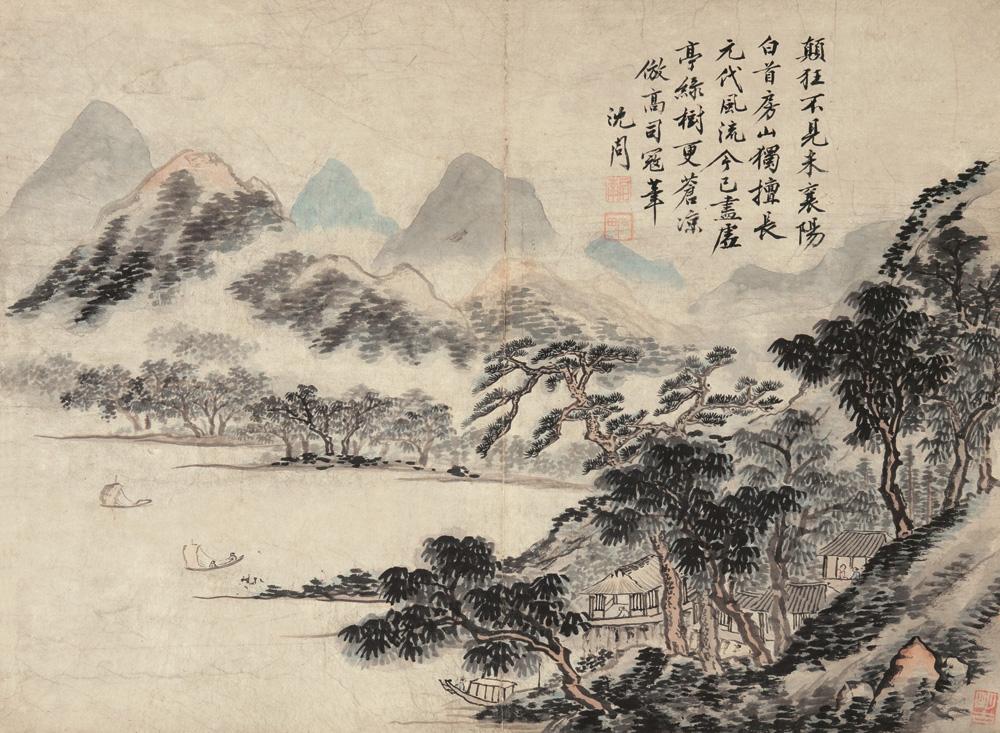 顛狂不見米襄陽
白首房山獨擅長
元代風流今已盡
亭綠樹更蒼凉
倣高司寇筆
沈周